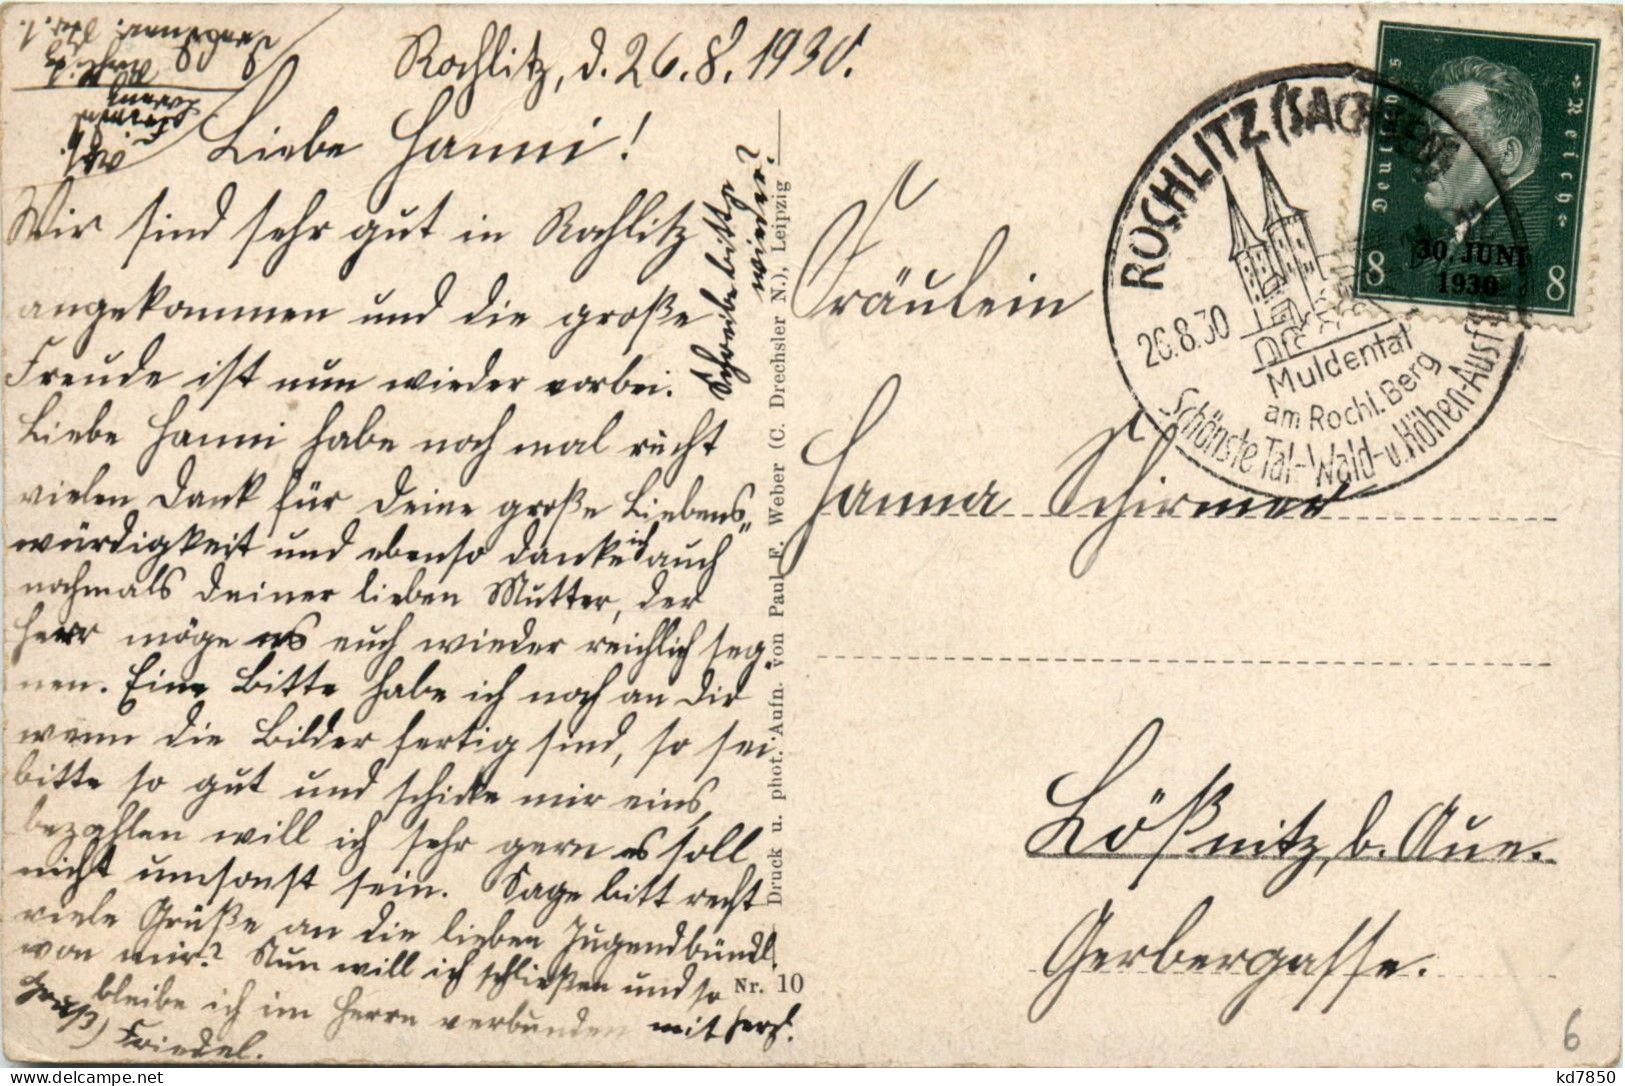 Rochlitz, d. 26.8.1930.
Liebe Hanni!
Wir sind sehr gut in Rochlitz
angekommen und die große
Freude ist nun wieder vorbei.
Liebe Hanni habe noch mal recht
vielen Dank für Deine große Liebens„
würdigkeit und ebenso danke ich auch
nochmals Deiner lieben Mutter, der
Herr möge es euch wieder reichlich seg„
nen. Eine Bitte habe ich noch an Dir
wenn die Bilder fertig sind, so sei
bitte so gut und schicke mir eins,
bezahlen will ich sehr gern es soll
nicht umsonst sein. Sage bitt recht
viele Grüße an die lieben Jugendbündl.
von mir? Nun will ich schließen und so
bleibe ich im Herrn verbunden mit herzl.
Gruß, Friedel.
Schreibe bitte
wieder?
Druck u. phot. Aufn. von Paul F. Weber (C. Drechsler N.), Leipzig
Nr. 10
Deutsches Reich
30. JUNI
1930
8 8
ROCHLITZ (SACHSEN)
26.8.30
Muldental
am Rochl. Berg
Schönste Tal- Wald- u. Höhen-Ausf
Fräulein
Hanna Schirmer
Lößnitz, b. Aue.
Gerbergasse.
6
kd7850